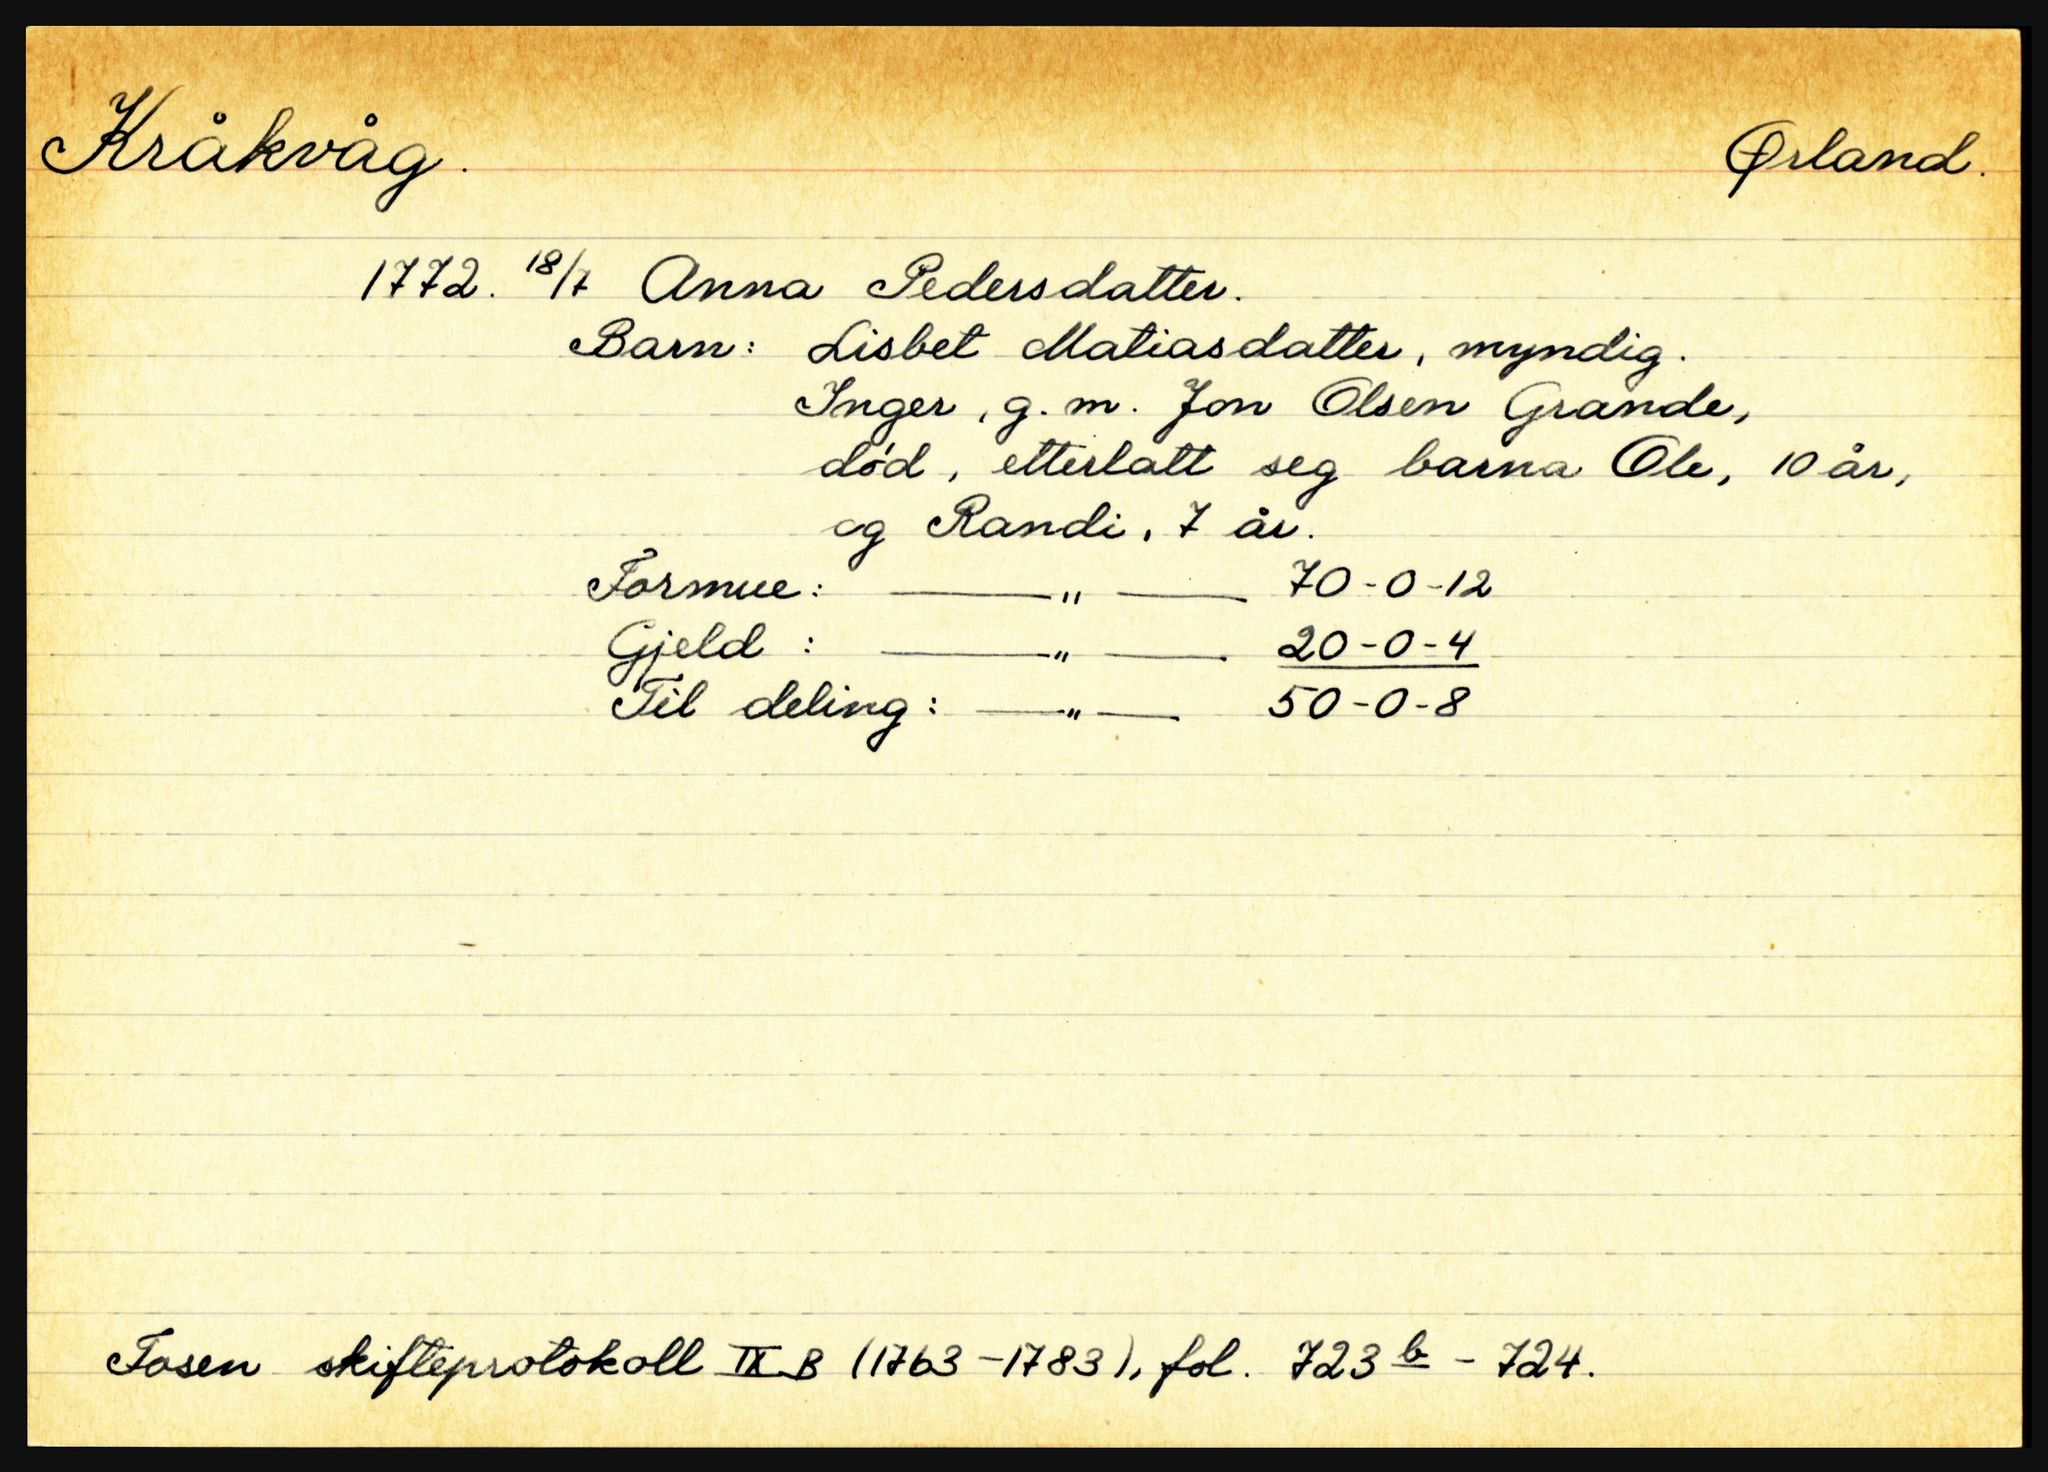 Kråkvåg. Ørland.
1772. 18/7 Anna Pedersdatter.
Barn: Lisbet Matiasdatter, myndig.
Inger, g. m. Jon Olsen Grande,
død, etterlatt seg barna Ole, 10 år,
og Randi, 7 år.
Formue: — " — 70-0-12
Gjeld : — " — 20-0-4
Til deling: — " — 50-0-8
Fosen skifteprotokoll IX B (1763-1783), fol. 723 b - 724.